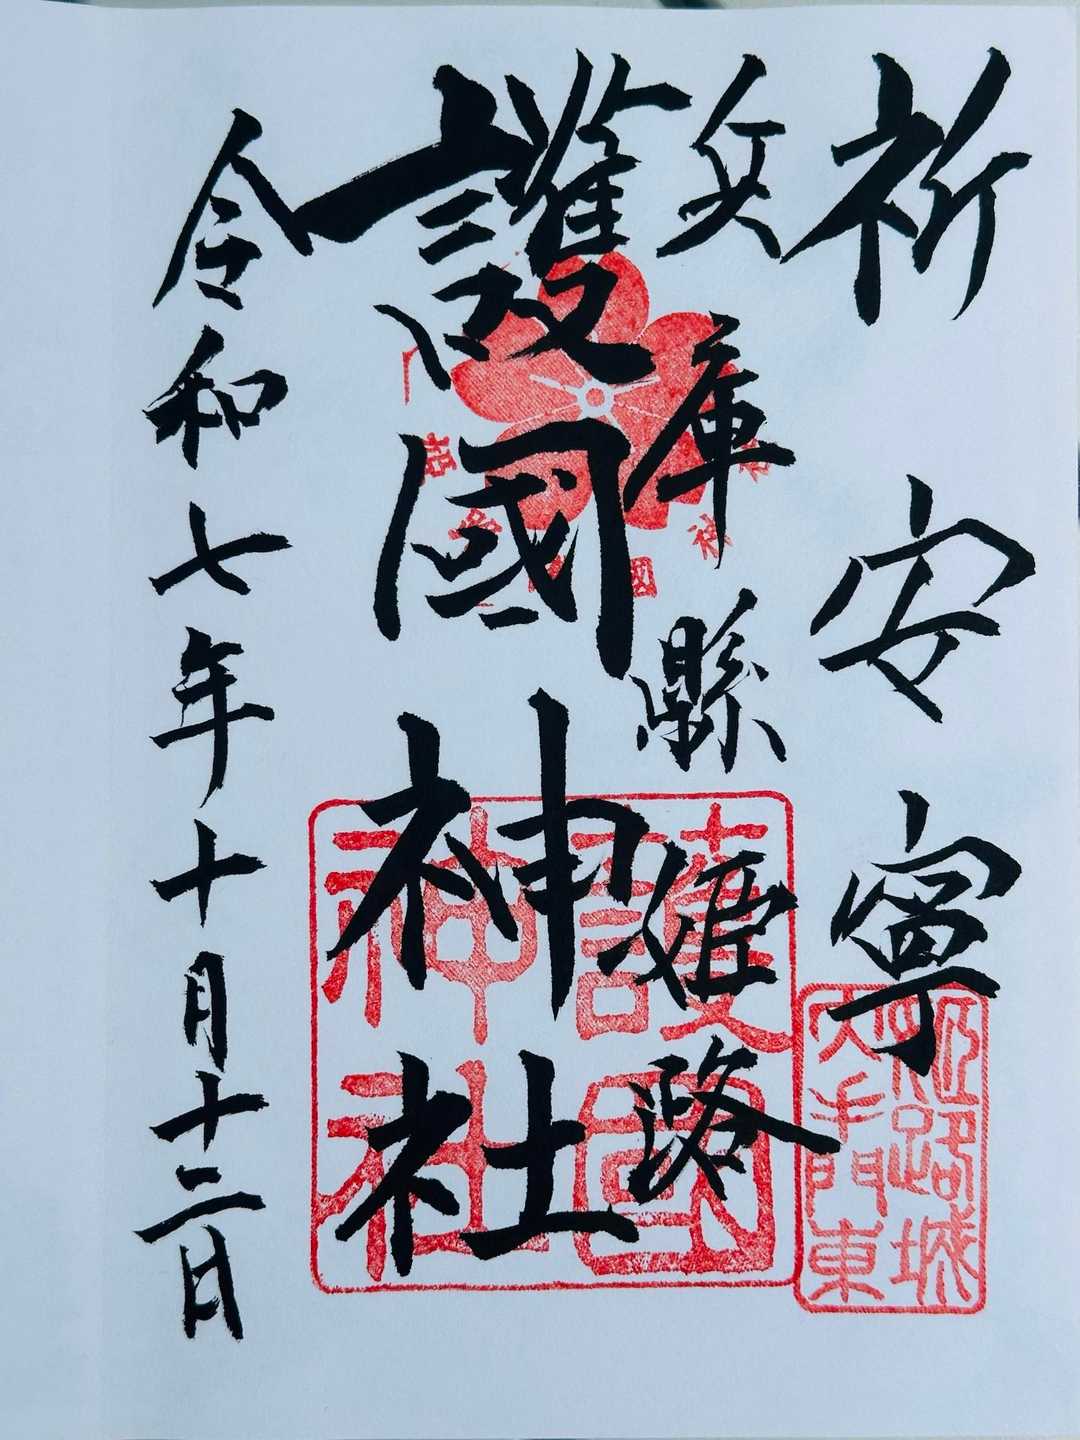 祈安寧
兵庫縣姫路
護國神社
令和七年十月十二日
護國神社
姫路城
大手門東